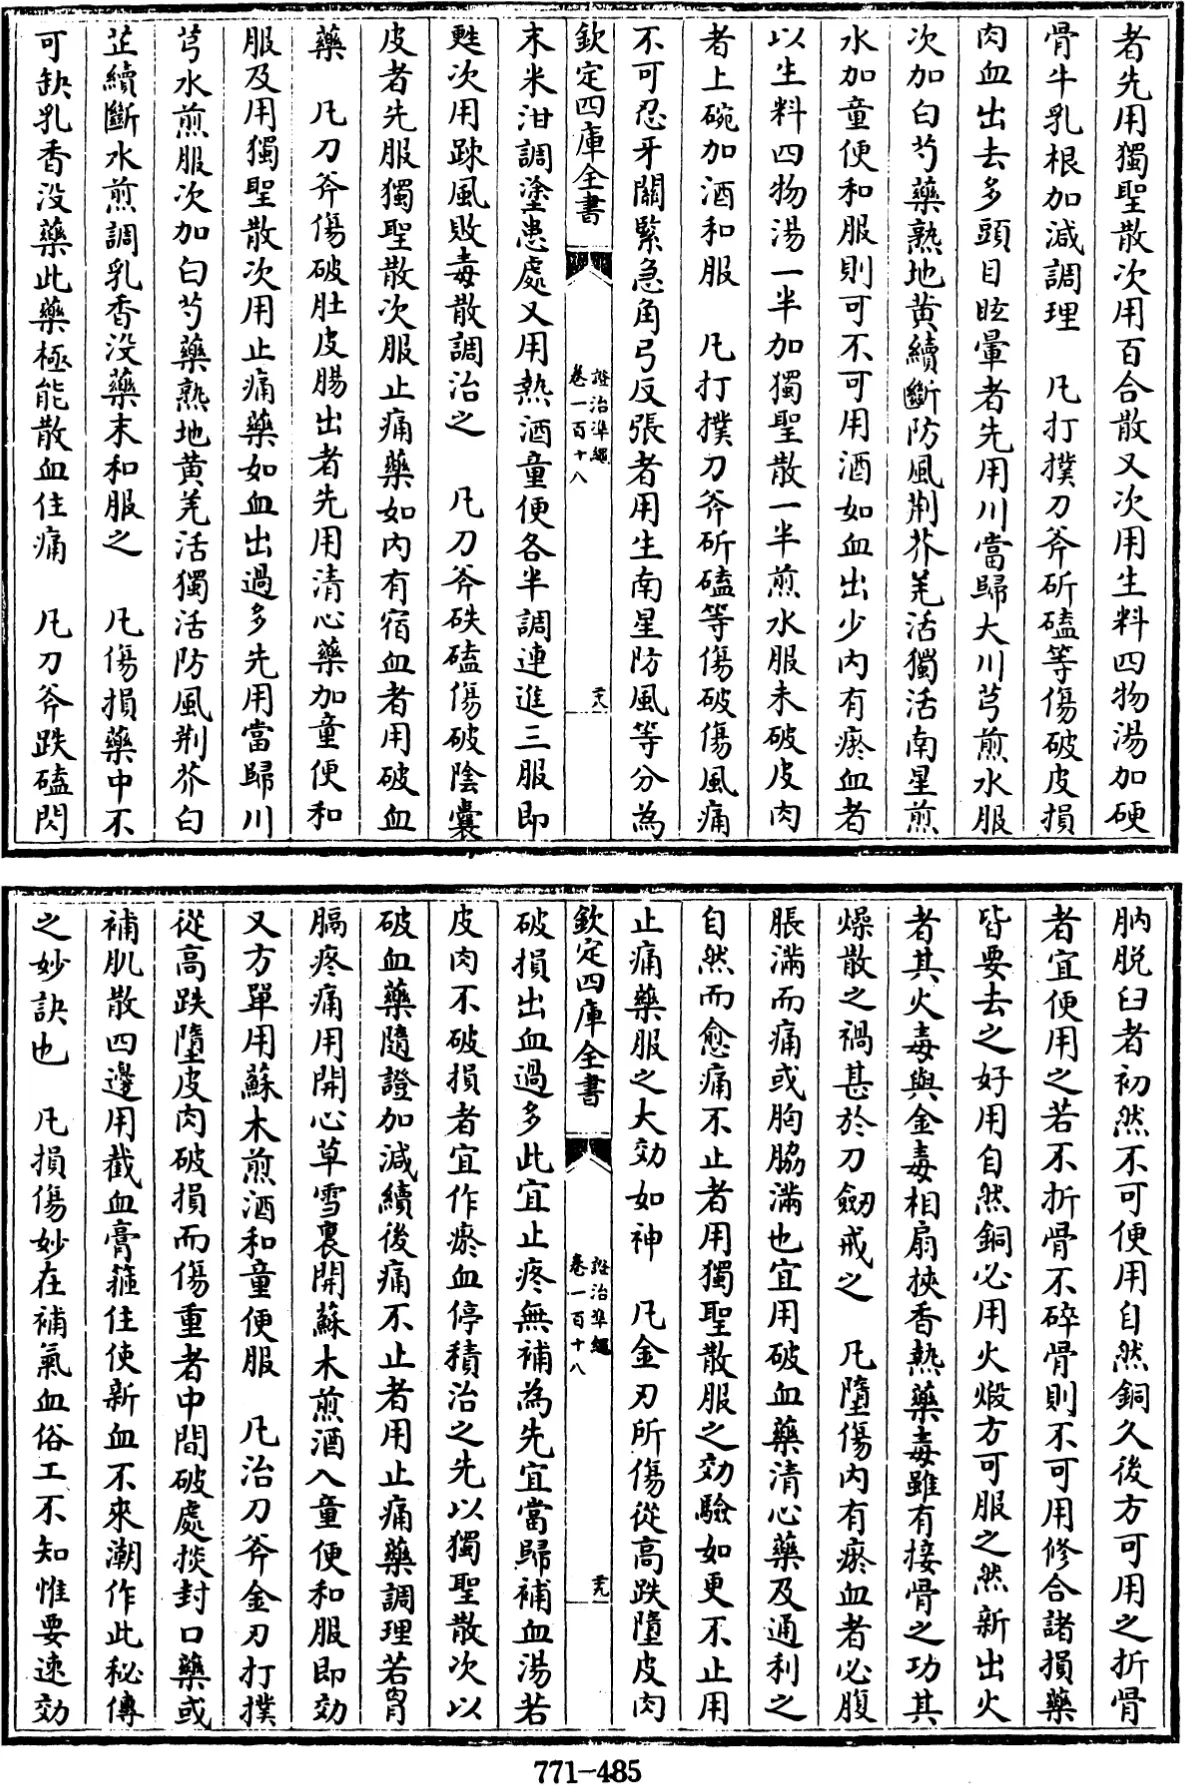 者先用獨聖散次用百合散又次用生料四物湯加硬
骨牛乳根加減調理　凡打撲刀斧斫磕等傷破皮損
肉血出去多頭目眩暈者先用川當歸大川芎煎水服
次加白芍藥熟地黄續斷防風荆芥羌活獨活南星煎
水加童便和服則可不可用酒如血出少内有瘀血者
以生料四物湯一半加獨聖散一半煎水服未破皮肉
者上碗加酒和服　凡打撲刀斧斫磕等傷破傷風痛
不可忍牙關緊急角弓反張者用生南星防風等分為
欽定四庫全書
證治準繩
卷一百十八
末米泔調塗患處又用熱酒童便各半調連進三服即
甦次用踈風敗毒散調治之　凡刀斧跌磕傷破陰囊
皮者先服獨聖散次服止痛藥如内有宿血者用破血
藥　凡刀斧傷破肚皮腸出者先用清心藥加童便和
服及用獨聖散次用止痛藥如血出過多先用當歸川
芎水煎服次加白芍藥熟地黄羌活獨活防風荆芥白
芷續斷水煎調乳香没藥末和服之　凡傷損藥中不
可缺乳香没藥此藥極能散血住痛　凡刀斧跌磕閃
肭脱臼者初然不可便用自然銅久後方可用之折骨
者宜便用之若不折骨不碎骨則不可用修合諸損藥
皆要去之好用自然銅必用火煅方可服之然新出火
者其火毒與金毒相扇挾香熱藥毒雖有接骨之功其
燥散之禍甚於刀劒戒之　凡墮傷内有瘀血者必腹
脹滿而痛或胸脇滿也宜用破血藥清心藥及通利之
自然而愈痛不止者用獨聖散服之効驗如更不止用
止痛藥服之大効如神　凡金刃所傷從高跌墮皮肉
欽定四庫全書
證治準繩
卷一百十八
破損出血過多此宜止疼無補為先宜當歸補血湯若
皮肉不破損者宜作瘀血停積治之先以獨聖散次以
破血藥隨證加減續後痛不止者用止痛藥調理若胷
膈疼痛用開心草雪裏開蘇木煎酒入童便和服即効
又方單用蘇木煎酒和童便服　凡治刀斧金刃打撲
從高跌墮皮肉破損而傷重者中間破處掞封口藥或
補肌散四邊用截血膏箍住使新血不來潮作此秘傳
之妙訣也　凡損傷妙在補氣血俗工不知惟要速効
771-485